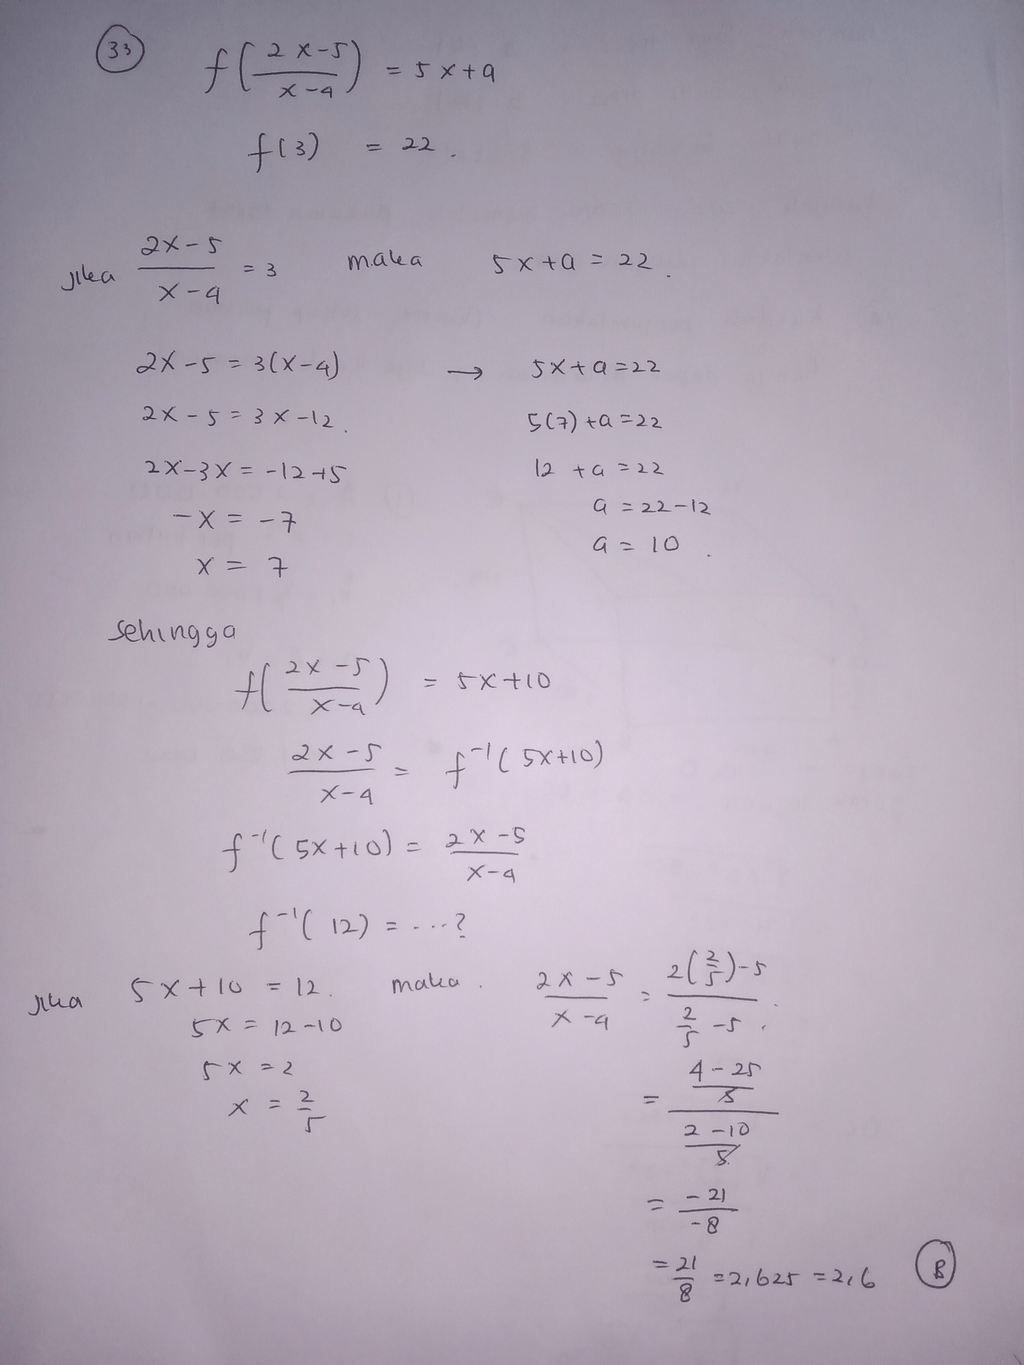 33
f(2x-5/x-4) = 5x+a
f(3) = 22.
jika 2x-5/x-4 = 3 maka 5x+a = 22.
2x-5 = 3(x-4) → 5x+a=22
2x-5 = 3x-12. 5(7)+a=22
2x-3x = -12+5 12+a=22
-x = -7 a = 22-12
x = 7 a = 10.
sehingga
f(2x-5/x-4) = 5x+10
2x-5/x-4 = f⁻¹(5x+10)
f⁻¹(5x+10) = 2x-5/x-4
f⁻¹(12) = ...?
jika 5x+10 = 12. maka. 2x-5/x-4 = 2(2/5)-5 / 2/5 -5.
5x = 12-10
5x = 2 = 4-25/5 / 2-10/5
x = 2/5
= -21/-8
= 21/8 = 2,625 = 2,6 B